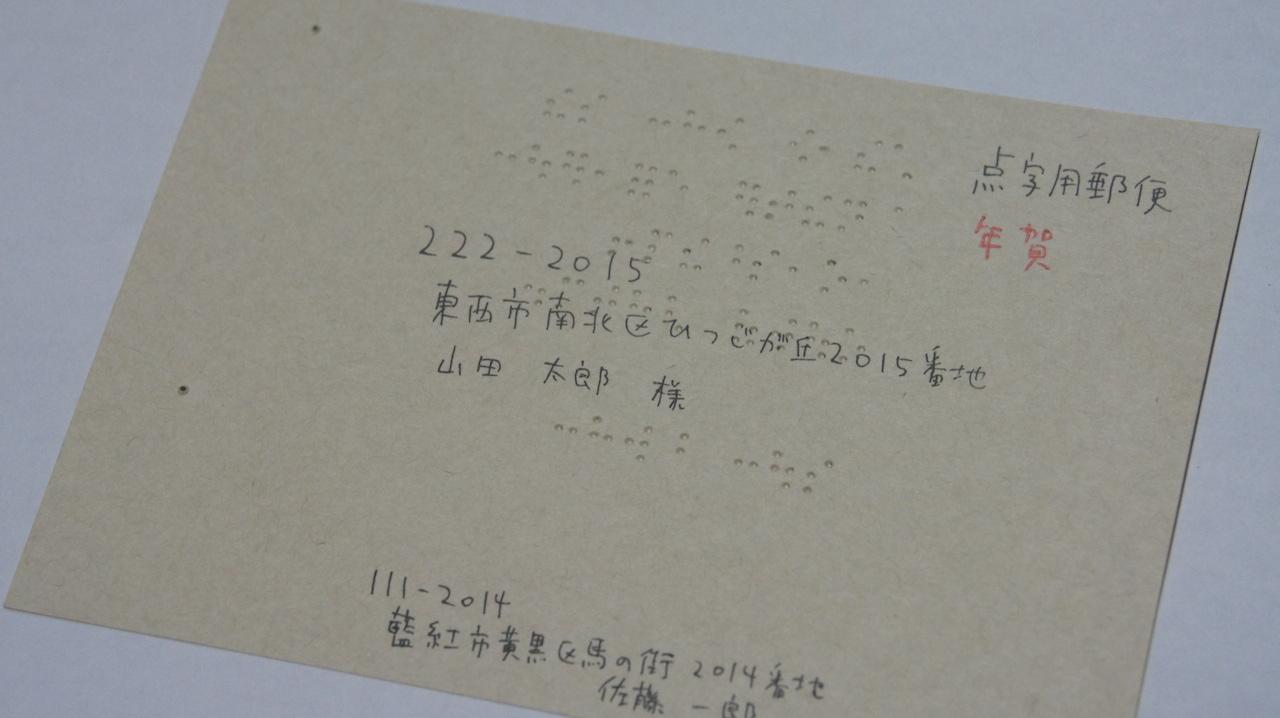 点字用郵便
年賀
222-2015
東西市南北区ひつじが丘2015番地
山田 太郎 様
111-2014
藍紅市黄黒区馬の街 2014番地
佐藤 一郎